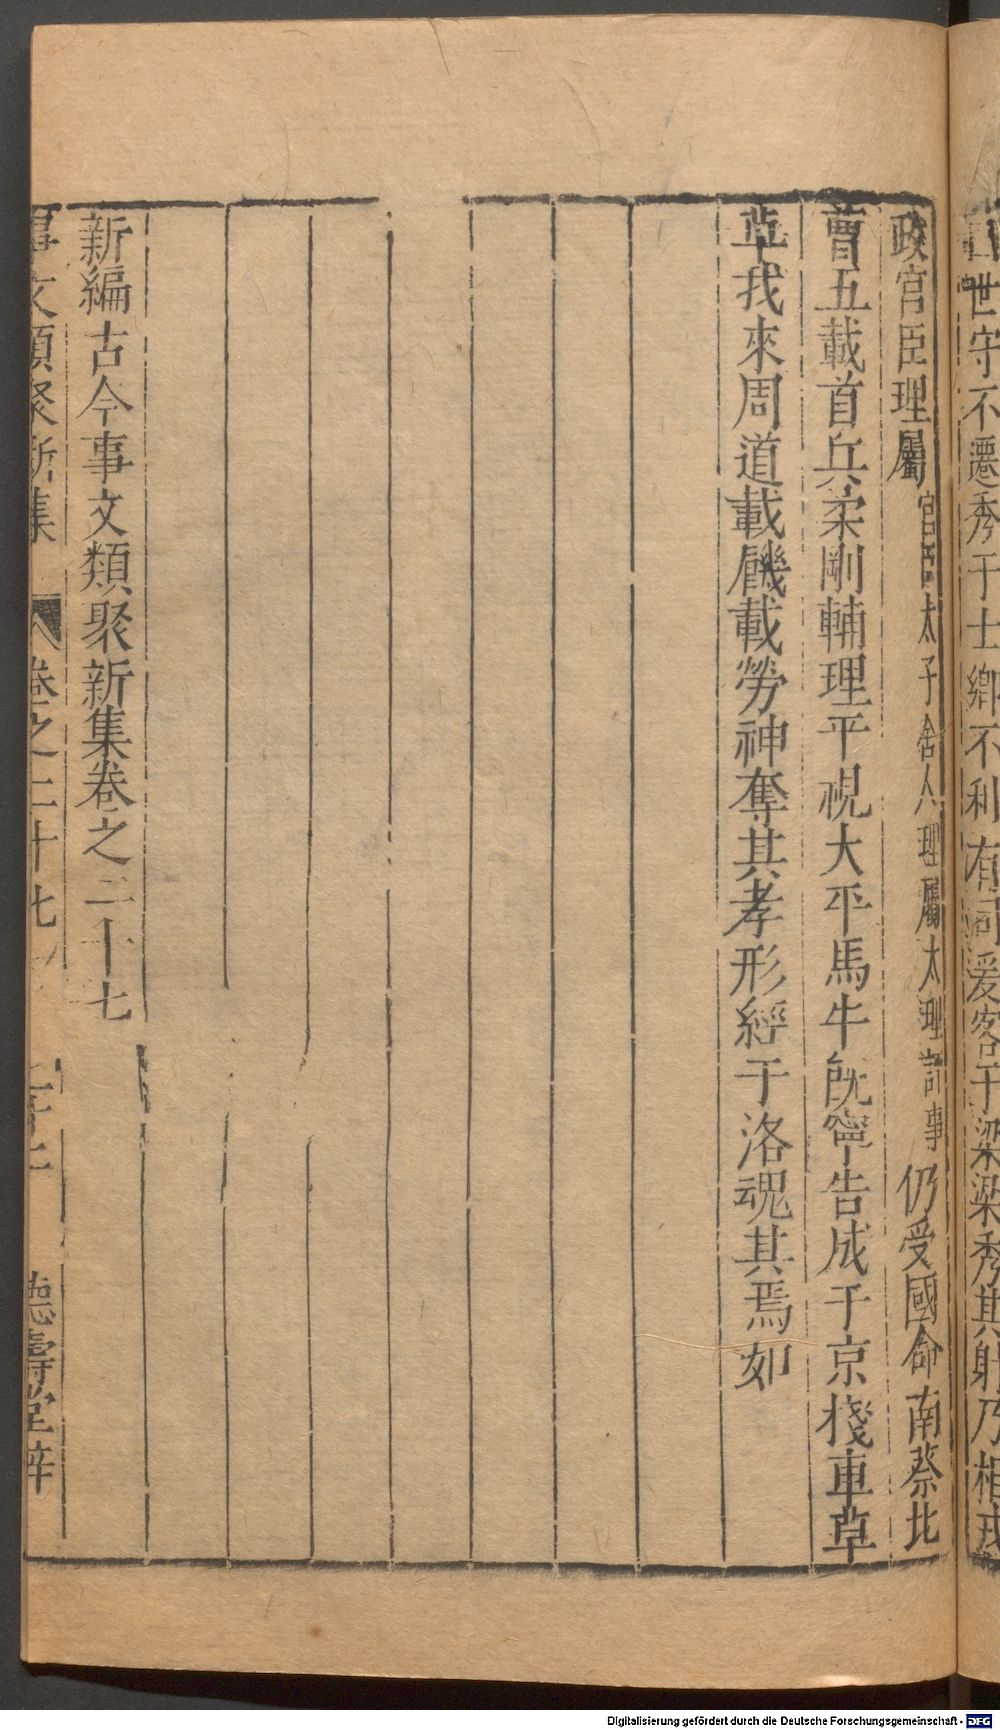 世守不遷秀于士鄉不利有司爰客于梁梁秀其射乃相戎
政宮臣理屬宮臣太子舍人理屬太理評事仍受國命南蔡北
曹五載首兵柔剛輔理平視大平馬牛既寧告成于京棧車草
草我來周道載饑載勞神奪其孝形經于洛魂其焉如
新編古今事文類聚新集卷之二十七
事文類聚新集
卷之二十七
德壽堂梓
Digitalisierung gefördert durch die Deutsche Forschungsgemeinschaft - DFG